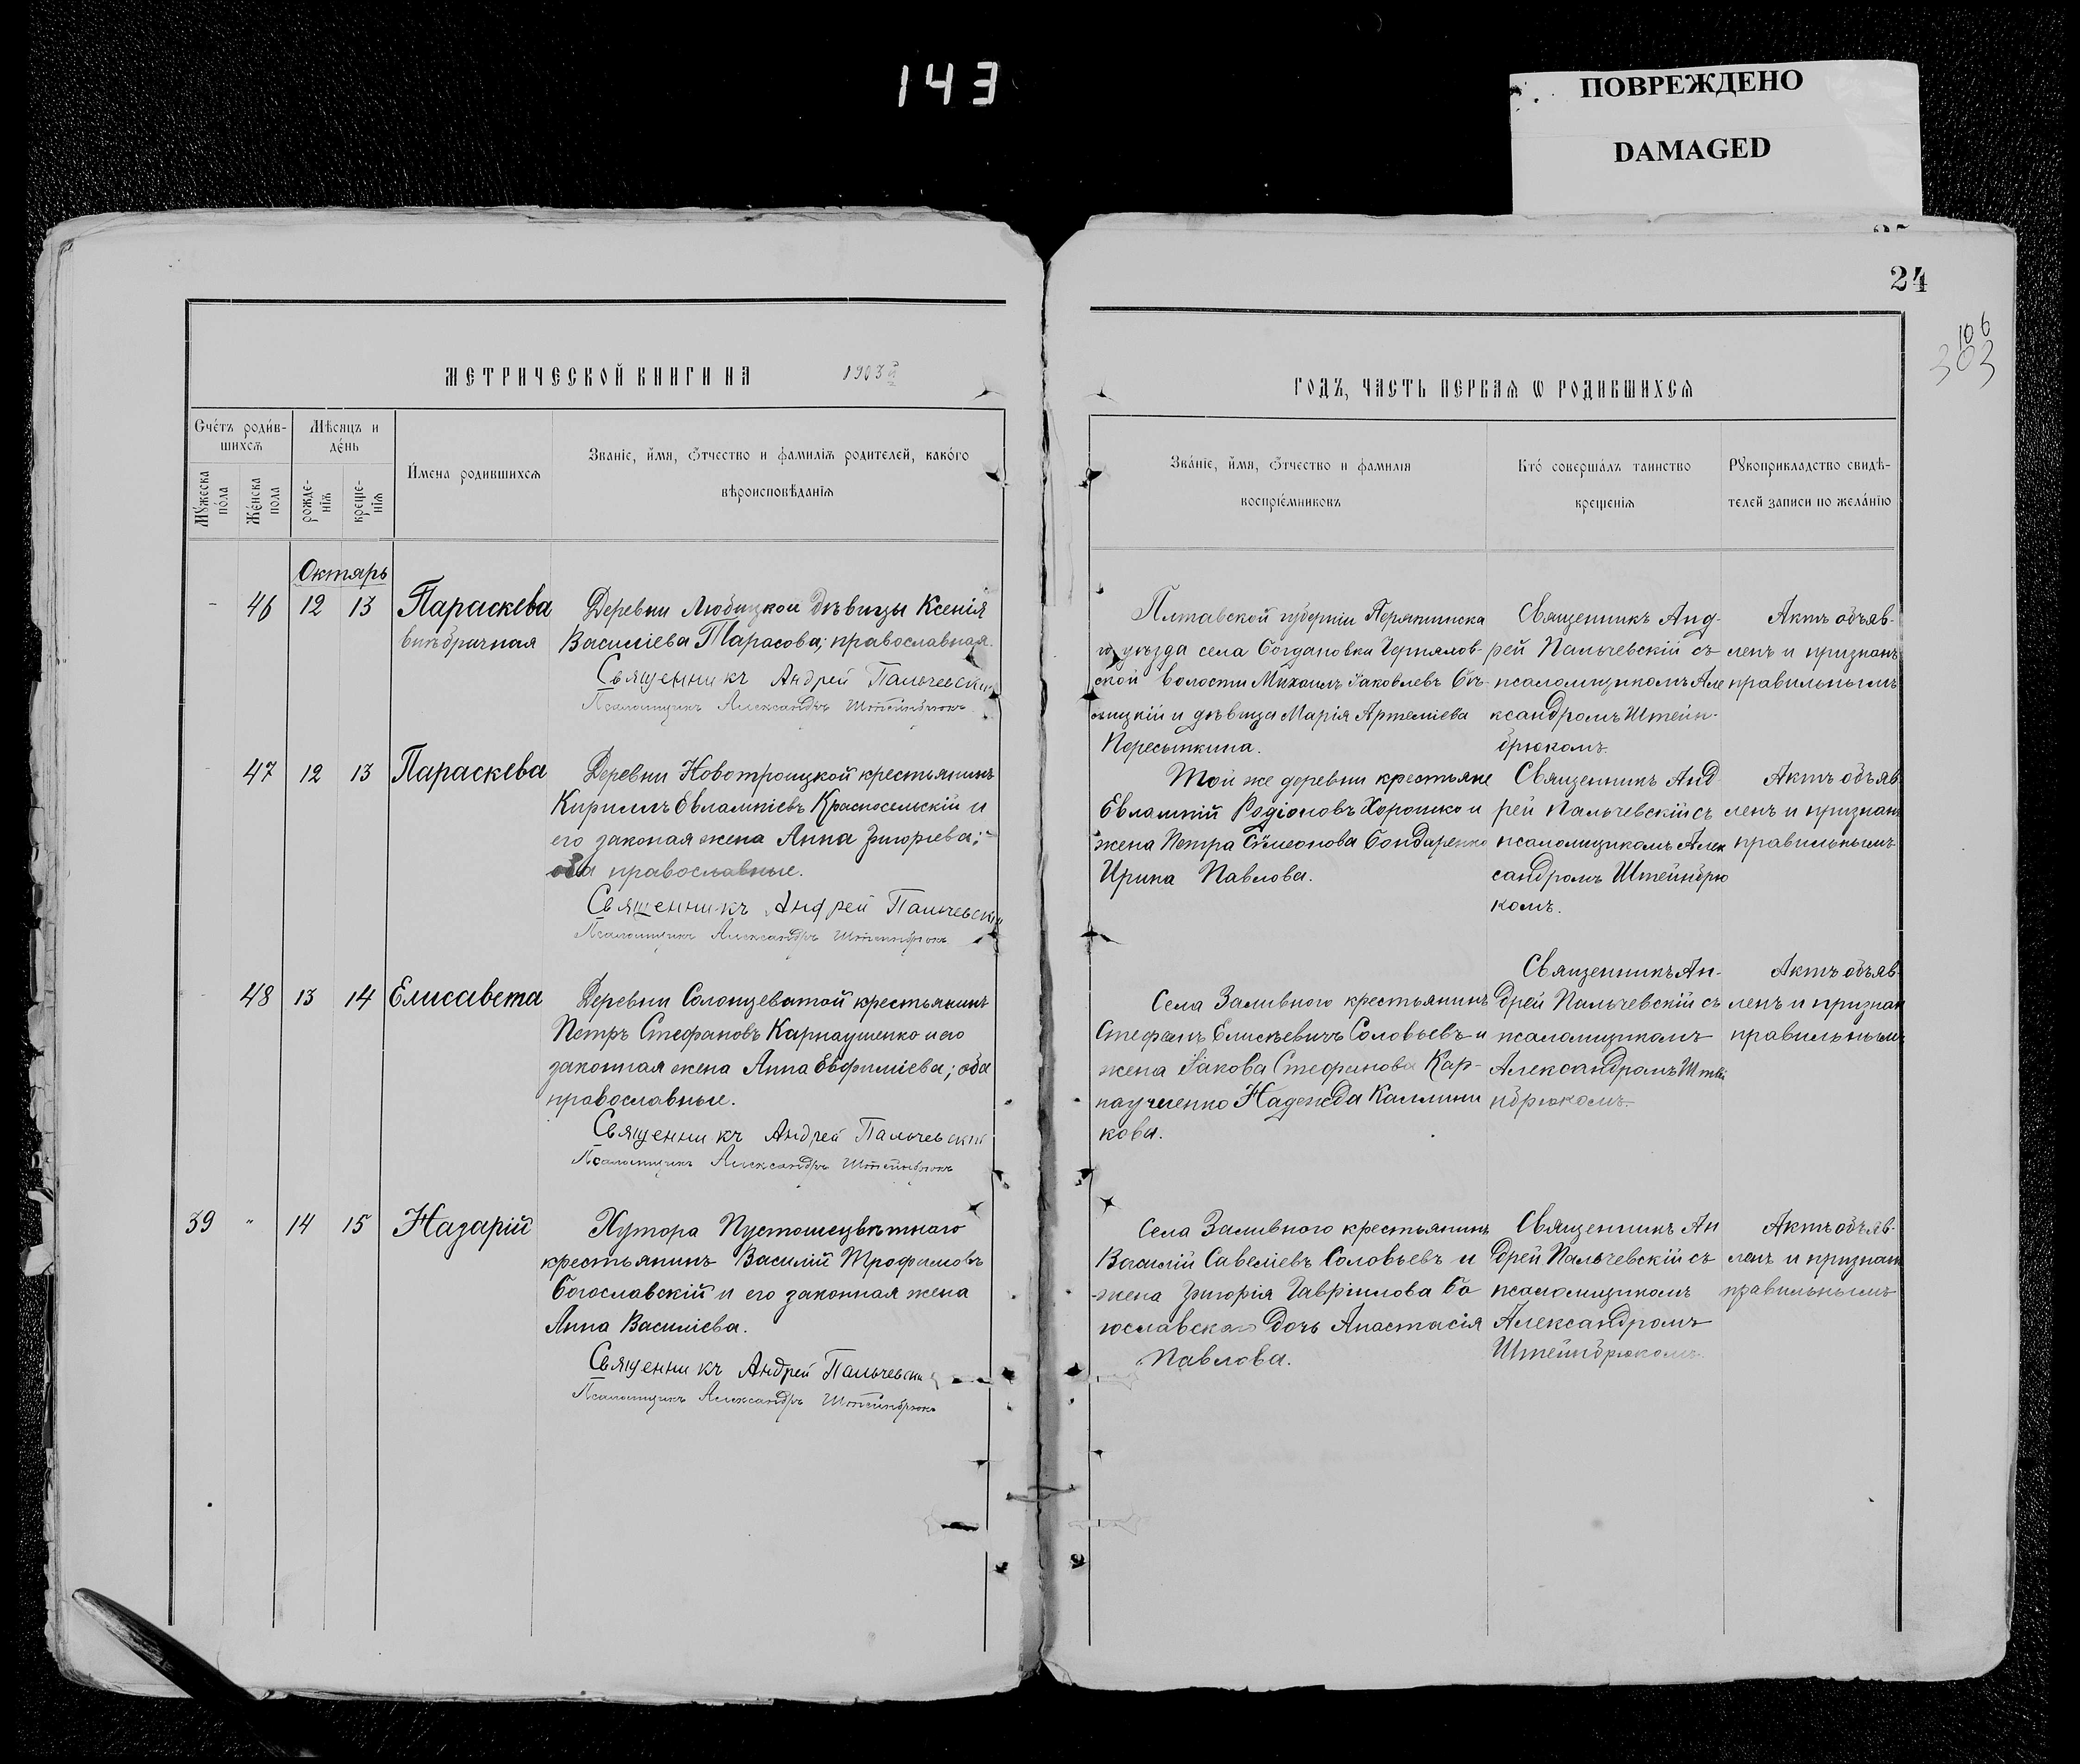 143
ПОВРЕЖДЕНО
DAMAGED
24
106
303
МЕТРИЧЕСКОЙ КНИГИ НА 1903й
ГОДЪ, ЧАСТЬ ПЕРВАЯ Ѡ РОДИВШИХСЯ
Счетъ родив-
шихся
Мужеска
пола
Женска
пола
Мѣсяцъ и
день
рожде-
нія
креще-
нія
Имена родившихся
Званіе, имя, ѿчество и фамилія родителей, какого
вѣроисповѣданія
Званіе, имя, ѿчество и фамилія
воспріемниковъ
Кто совершалъ таинство
крещенія
Рукоприкладство свидѣ-
телей записи по желанію
Октярь
46 12 13 Параскева
внѣбрачная
Деревни Любицкой дѣвицы Ксенія
Василіева Тарасова; православная.
Священникъ Андрей Пальчевскій
Псаломщикъ Александръ Штейнбрюкъ
Плтавской губерніи Пирятинска
го уѣзда села Богдановки
ской волости Михаилъ Іаковлевъ
и дѣвица Марія Артеміева
Пересыпкина.
Священникъ Анд-
рей Пальчевскій съ
псаломщикомъ Але
ксандромъ Штейн-
брюкомъ.
Актъ объяв-
ленъ и признанъ
правильнымъ
47 12 13 Параскева
Деревни Новотроицкой крестьянинъ
Кириллъ Евлампіевъ Красносельскій и
его законая жена Анна Григоріева;
оба православные.
Священникъ Андрей Пальчевскій
Псаломщикъ Александръ Штейнбрюкъ
Той же деревни крестьяне
Евлампій Родіоновъ Хорошко и
жена Петра Сѵмеонова Бондаренко
Ирина Павлова.
Священникъ Анд
рей Пальчевскій съ
псаломщикомъ Алек
сандромъ Штейнбрю
комъ.
Актъ объяв
ленъ и признанъ
правильнымъ
48 13 14 Елисавета
Деревни Солонцеватой крестьянинъ
Петръ Стефановъ Карнаушенко и его
законная жена Анна Евфиміева; оба
православные.
Священникъ Андрей Пальчевскій
Псаломщикъ Александръ Штейнбрюкъ
Села Заливного крестьянинъ
Стефанъ Елисѣевичъ Соловьевъ и
жена Іакова Стефанова Кар-
наушенко Надежда Каллини
кова.
Священникъ Ан-
дрей Пальчевскій съ
псаломщикомъ
Александромъ Штей
нбрюкомъ.
Актъ объяв-
ленъ и признан
правильнымъ
39 " 14 15 Назарій
Хутора Пустошецвѣтнаго
крестьянинъ Василій Трофимовъ
Богославскій и его законная жена
Анна Василіева.
Священникъ Андрей Пальчевскі
Псаломщикъ Александръ Штейнбрюкъ
Села Заливного крестьянинъ
Василій Савеліевъ Соловьевъ и
жена Григорія Гавріилова Бо
гославскаго дочь Анастасія
Павлова.
Священникъ Ан
дрей Пальчевскій съ
псаломщикомъ
Александромъ
Штейнбрюкомъ.
Актъ объяв-
ленъ и признанъ
правильнымъ